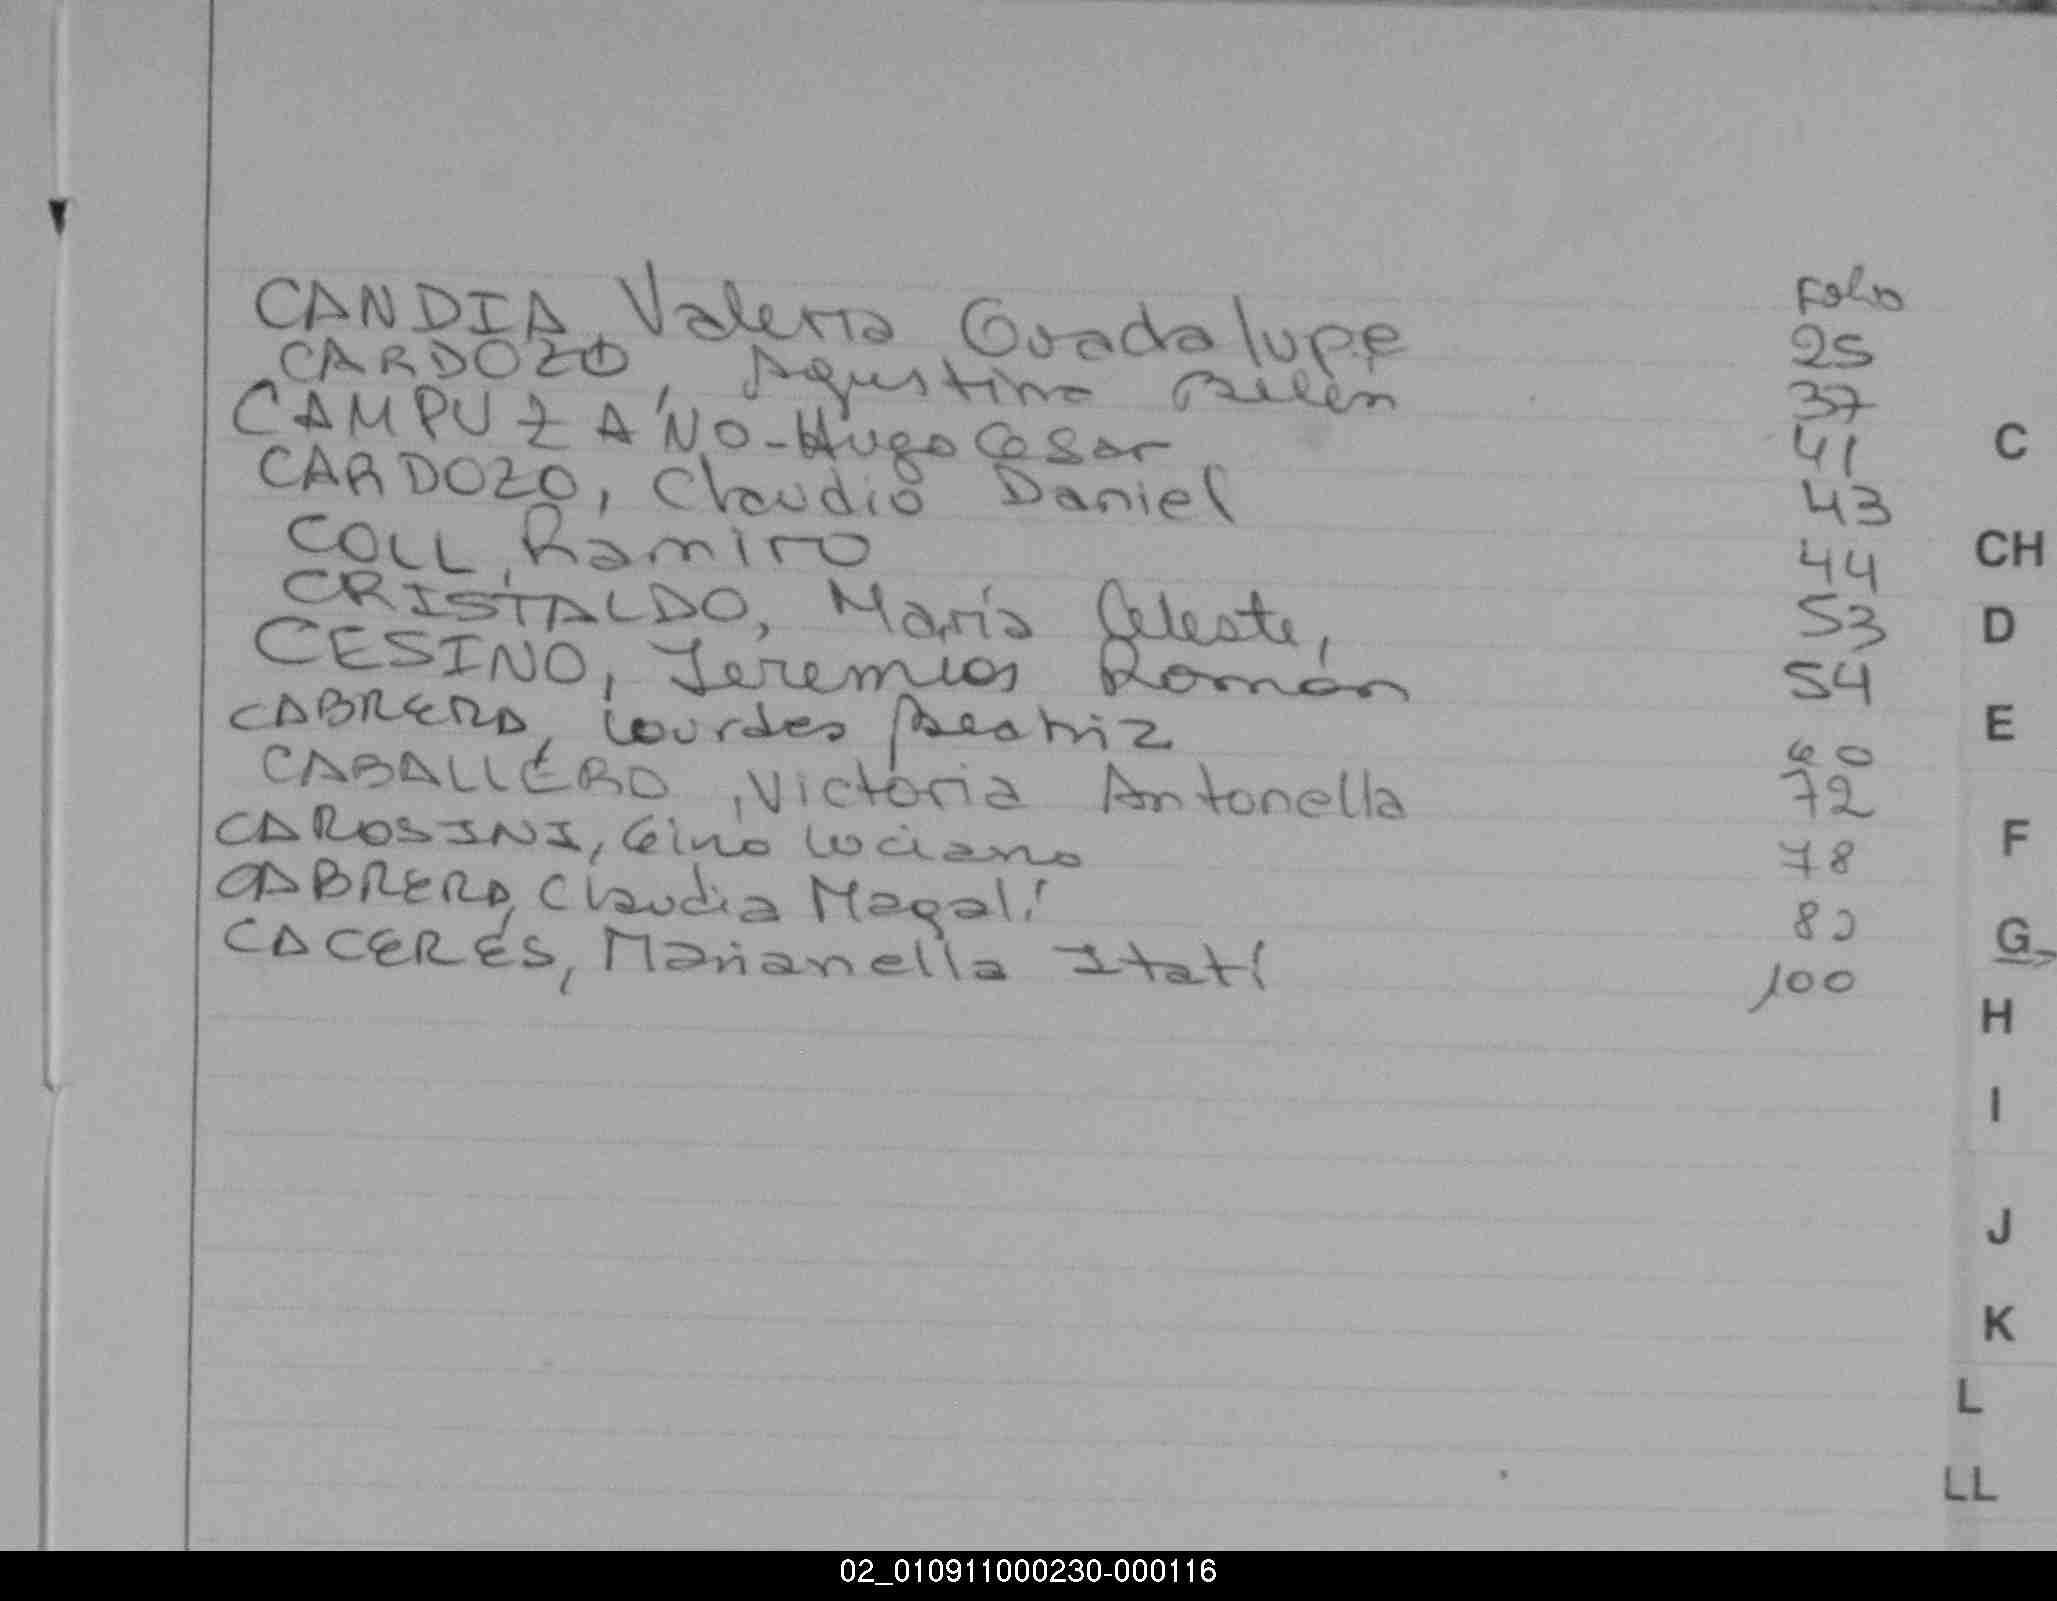 Folio
CANDIA, Valeria Guadalupe 25
CARDOZO, Agustina Belén 37
CAMPUZANO-Hugo Cesar 41
CARDOZO, Claudio Daniel 43
COLL, Ramiro 44
CRISTALDO, María Celeste, 53
CESINO, Jeremias Román 54
CABRERA, Lourdes Beatriz 60
CABALLERO, Victoria Antonella 72
CAROSINI, Gino Luciano 78
CABRERA, Claudia Magalí
CACERES, Marianella Itatí 100
C
CH
D
E
F
G
H
I
J
K
L
LL
02_010911000230-000116